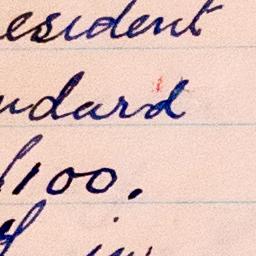 esident
ndard
100.
in